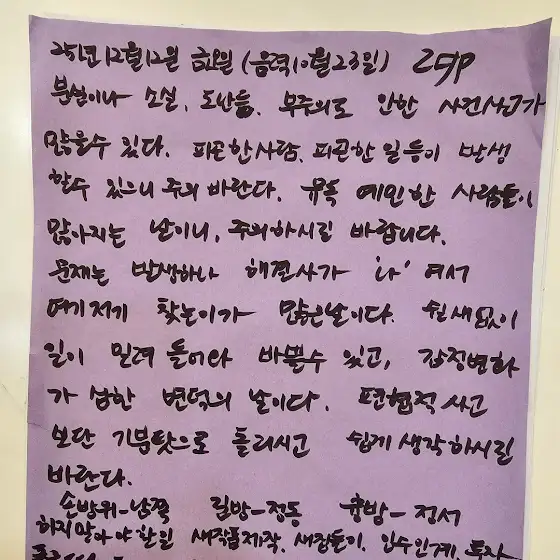 25년12월12일 금요일 (음력10월23일)
분실이나 소실, 도난등, 부주의로 인한 사건사고가
많을수 있다. 피곤한사람, 피곤한 일 등이 발생
할수 있으니 주의 바란다. 유독 예민한 사람들이
많아지는 날이니, 주의하시길 바랍니다.
문제는 발생하나 해결사가 '나' 여서
여기저기 찾는이가 많은날이다. 쉴새없이
일이 밀려 들어와 바쁠수 있고, 감정변화
가 심한 변덕의 날이다. 편협적 사고
보단 기분탓으로 돌리시고 쉽게 생각하시길
바란다.
손방위-남쪽 길방-정동 흉방-정서
하지말아야할일 새작품제작, 새집들이, 인수인계,